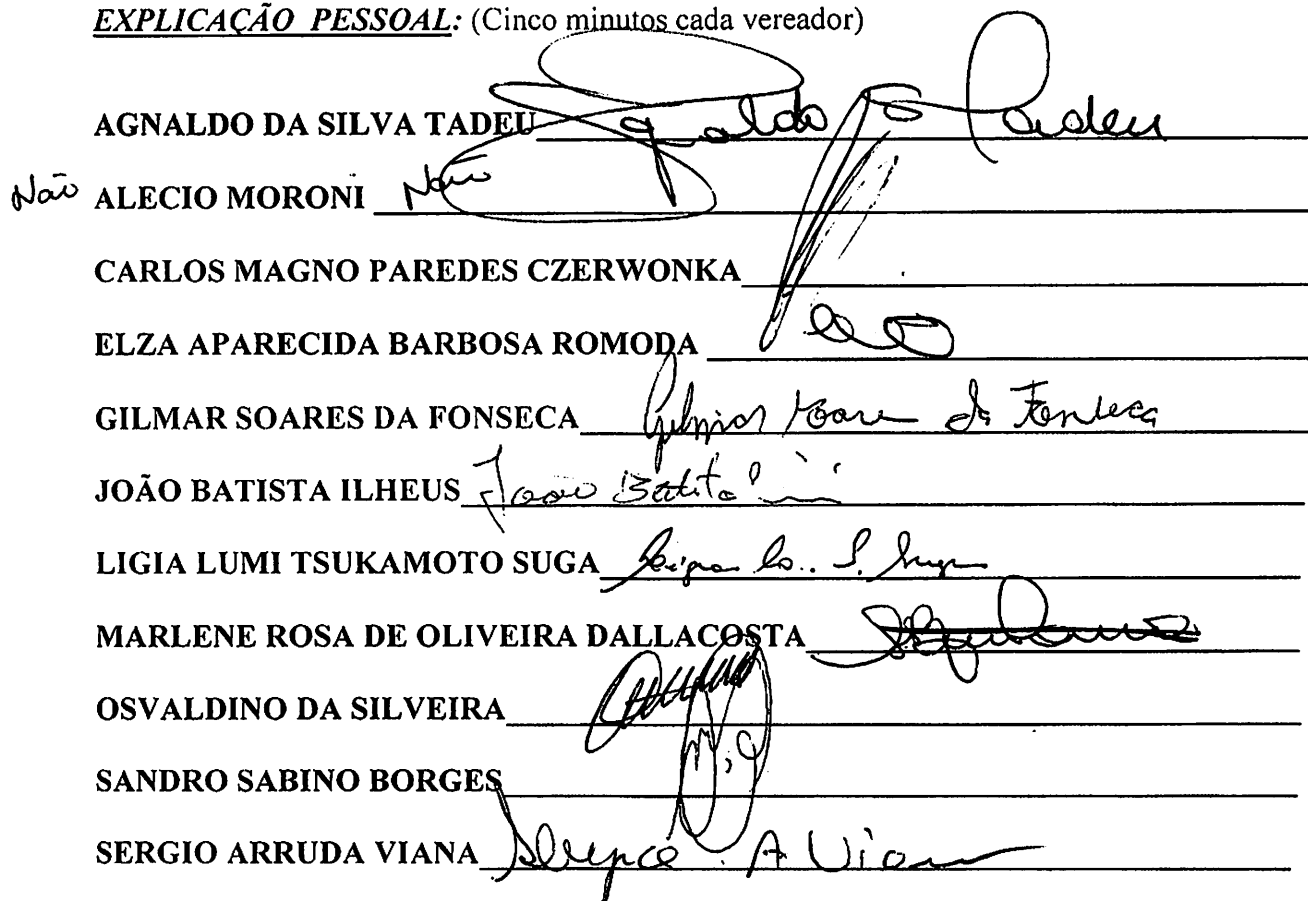 EXPLICAÇÃO PESSOAL: (Cinco minutos cada vereador)
AGNALDO DA SILVA TADEU
Não ALECIO MORONI Não
CARLOS MAGNO PAREDES CZERWONKA
ELZA APARECIDA BARBOSA ROMODA
GILMAR SOARES DA FONSECA Gilmar Soares da Fonseca
JOÃO BATISTA ILHEUS João Batista
LIGIA LUMI TSUKAMOTO SUGA
MARLENE ROSA DE OLIVEIRA DALLACOSTA
OSVALDINO DA SILVEIRA
SANDRO SABINO BORGES
SERGIO ARRUDA VIANA Sergio A Viana